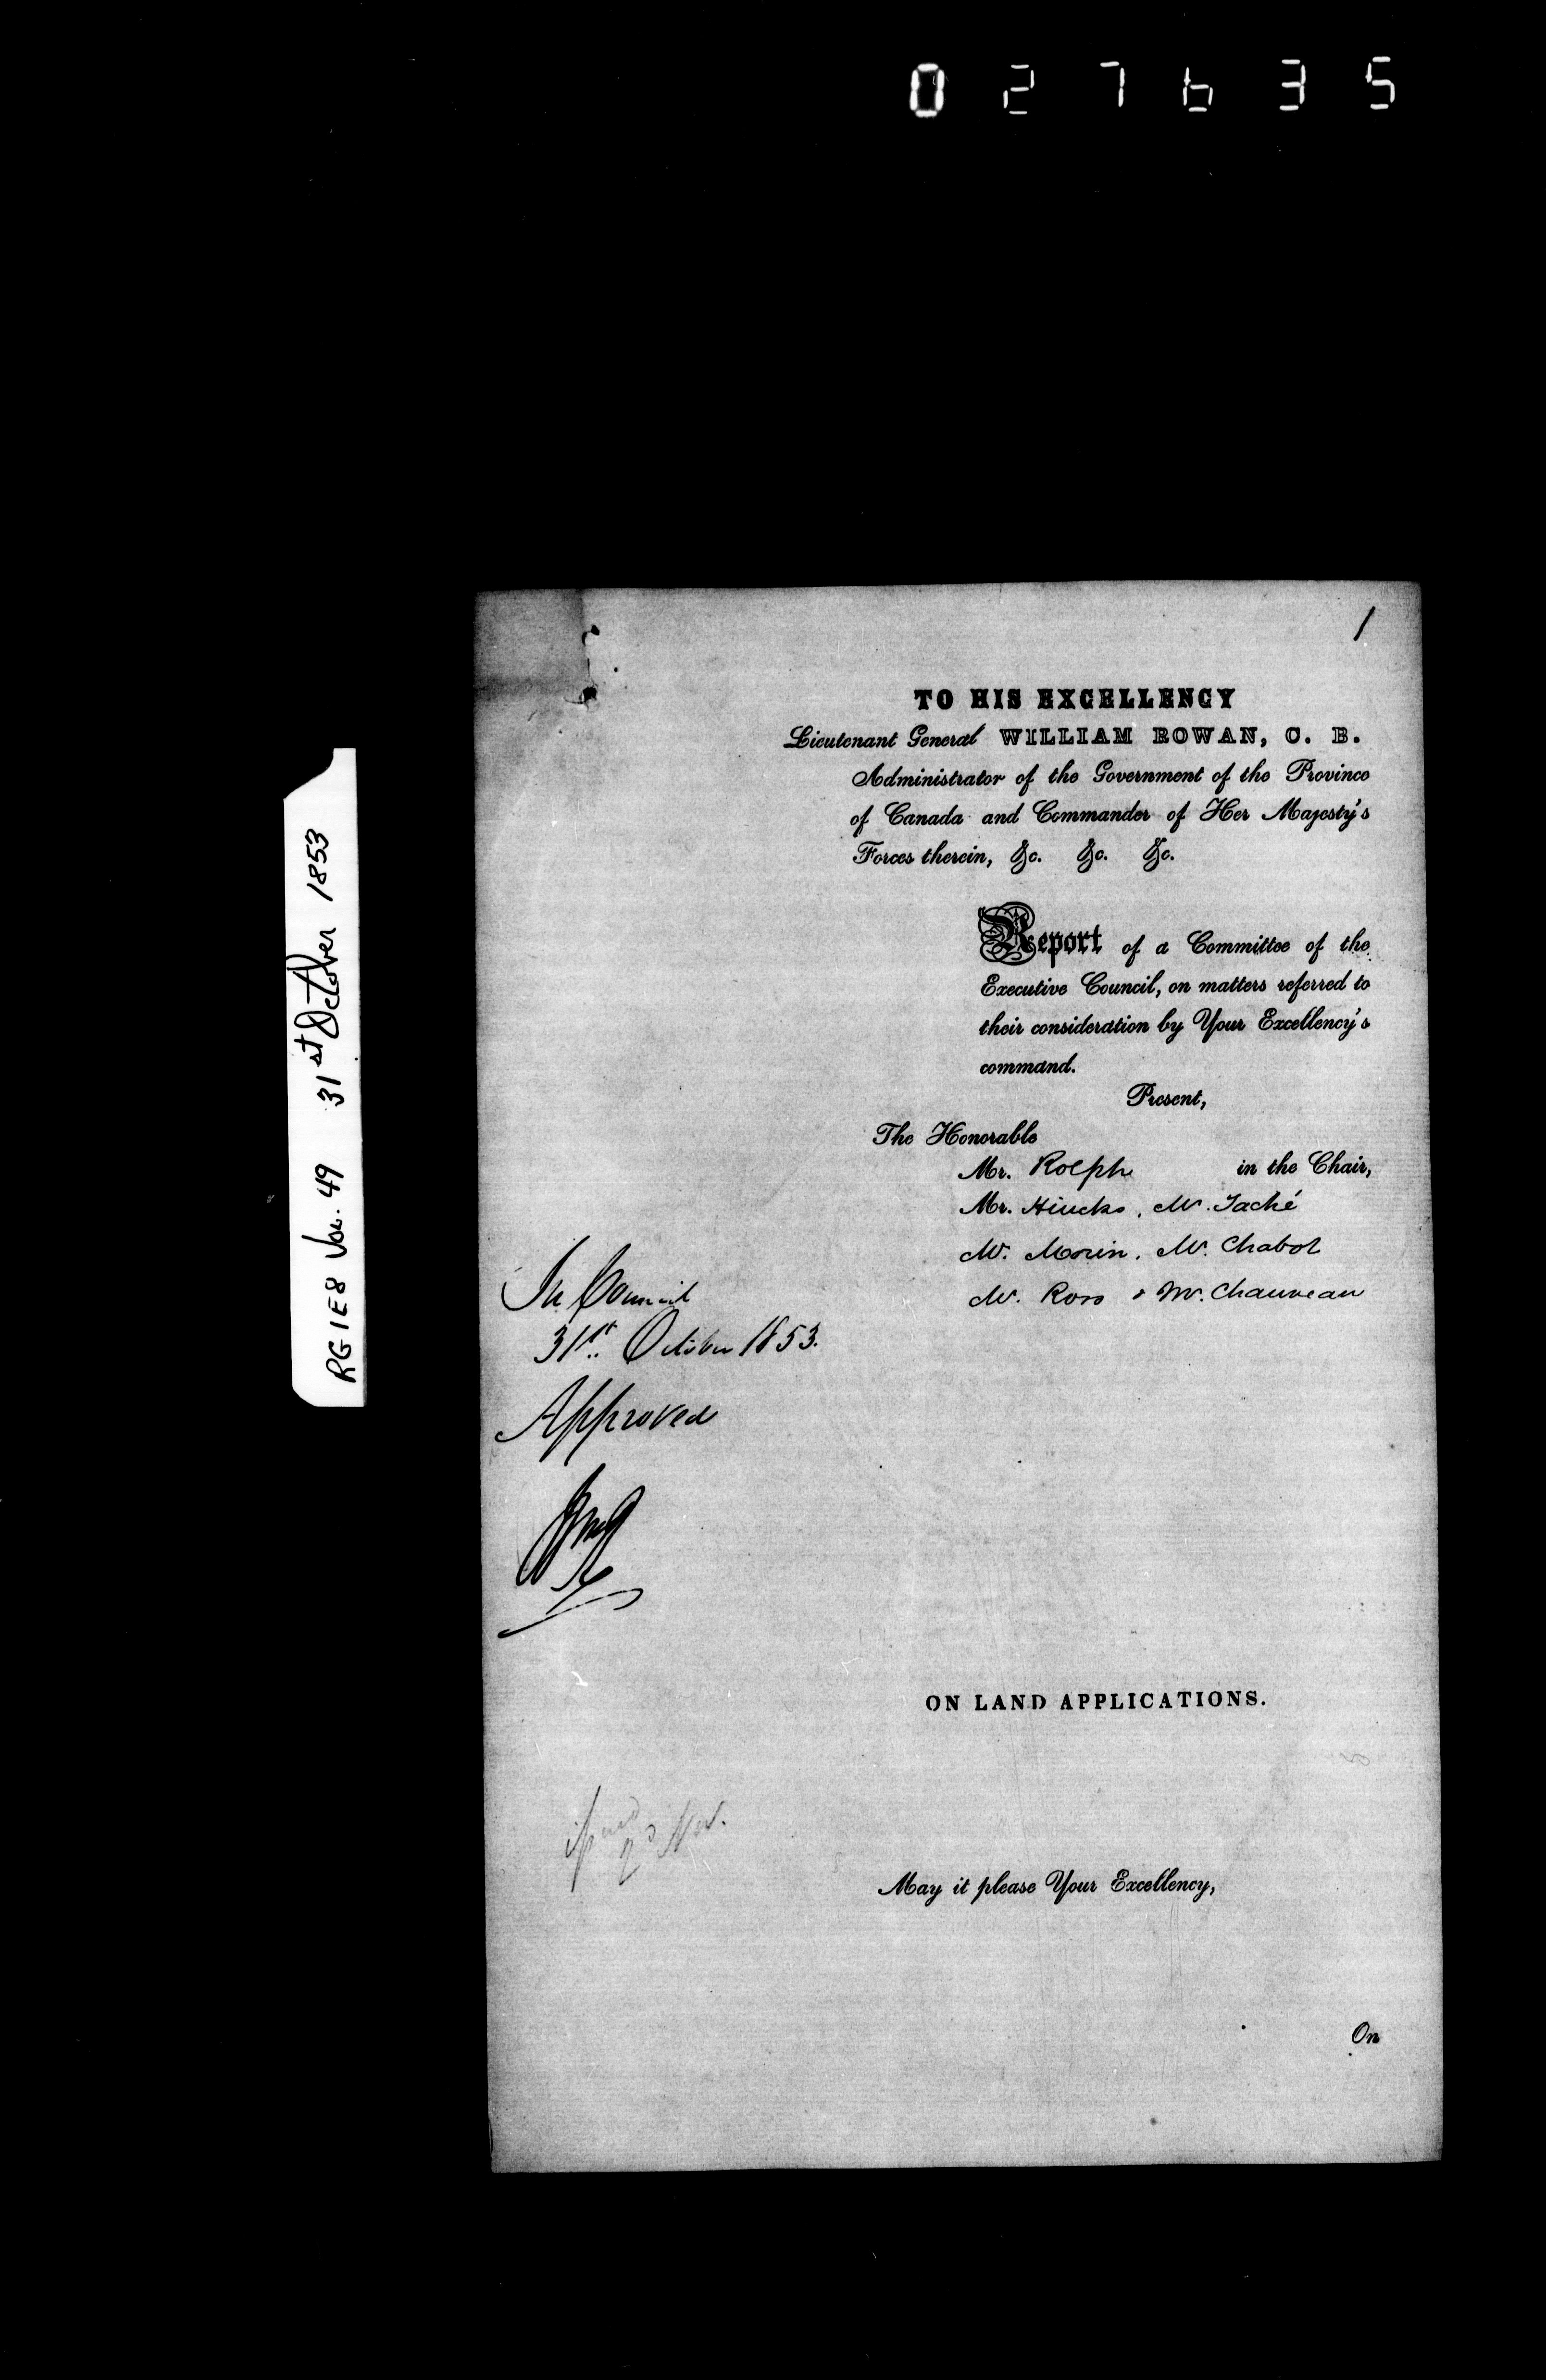 027635
RG1E8 Vol. 49 31st October 1853
1
TO HIS EXCELLENCY
Lieutenant General WILLIAM ROWAN, C. B.
Administrator of the Government of the Province
of Canada and Commander of Her Majesty's
Forces therein, &c. &c. &c.
Report of a Committee of the
Executive Council, on matters referred to
their consideration by Your Excellency's
command.
Present,
The Honorable
Mr. Rolph in the Chair,
Mr. Hincks, Mr. Taché
Mr. Morin, Mr. Chabot
Mr. Ross & Mr. Chauveau
In Council
31st. October 1853.
Approved
ON LAND APPLICATIONS.
2d Nov.
May it please Your Excellency,
On